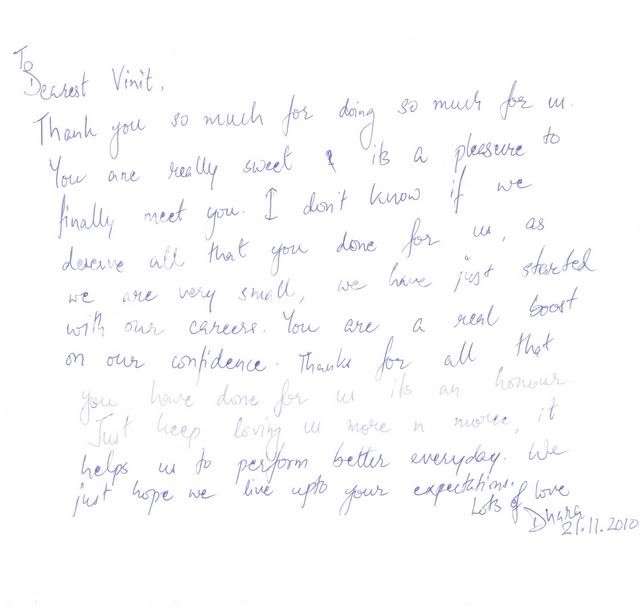 To
Dearest Vinit,
Thank you so much for doing so much for us.
You are really sweet & its a pleasure to
finally meet you. I don't know if we
deserve all that you done for us, as
we are very small, we have just started
with our careers. You are a real boost
on our confidence. Thanks for all that
you have done for us its an honour.
Just keep loving us more n more, it
helps us to perform better everyday. We
just hope we live upto your expectations.
Lots of love
Dhara
21.11.2010